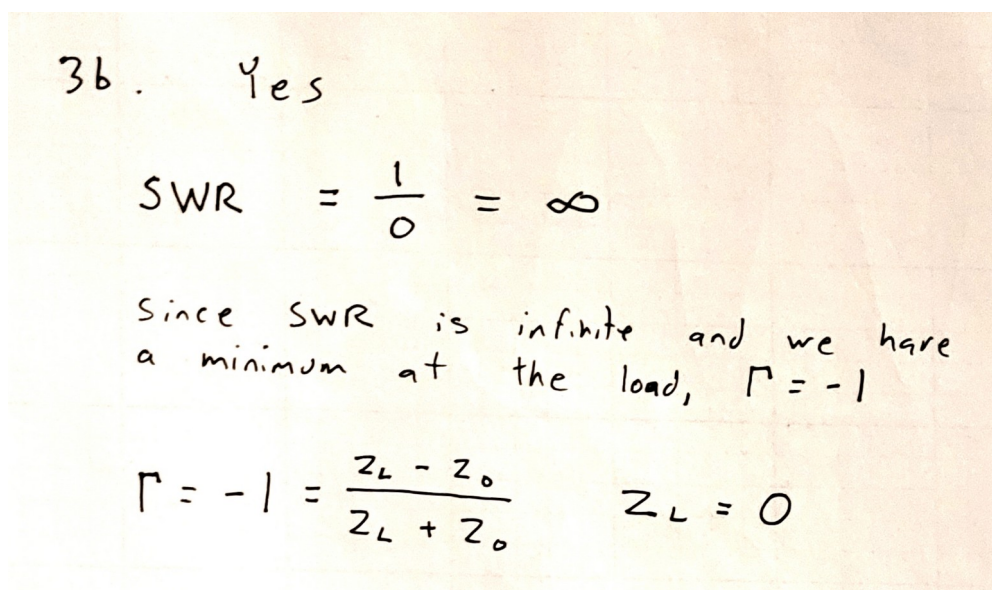 3b. Yes
SWR = 1/0 = ∞
Since SWR is infinite and we have
a minimum at the load, Γ = -1
Γ = -1 = (Z_L - Z_0)/(Z_L + Z_0) Z_L = 0